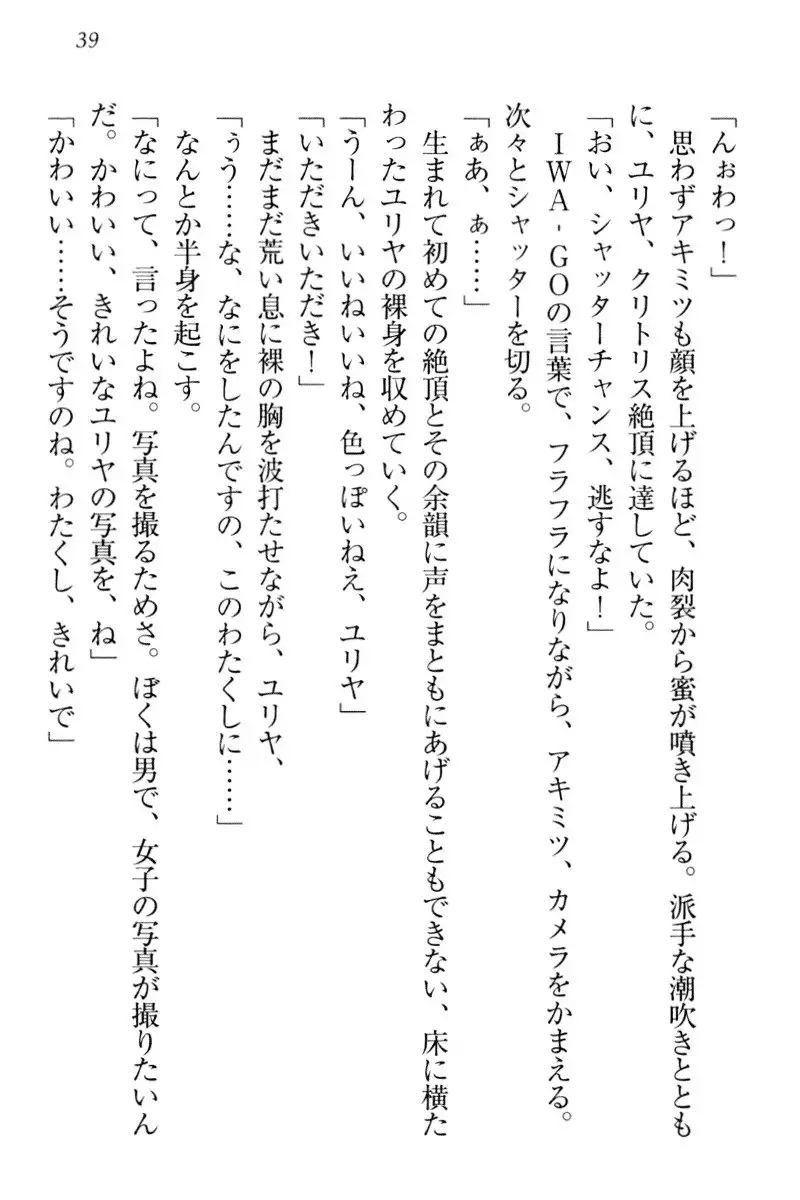 39
「んぉわっ！」
　思わずアキミツも顔を上げるほど、肉裂から蜜が噴き上げる。派手な潮吹きととも
に、ユリヤ、クリトリス絶頂に達していた。
「おい、シャッターチャンス、逃すなよ！」
　IWA-GOの言葉で、フラフラになりながら、アキミツ、カメラをかまえる。
次々とシャッターを切る。
「ぁあ、ぁ……」
　生まれて初めての絶頂とその余韻に声をまともにあげることもできない、床に横た
わったユリヤの裸身を収めていく。
「うーん、いいねいいね、色っぽいねえ、ユリヤ」
「いただきいただき！」
　まだまだ荒い息に裸の胸を波打たせながら、ユリヤ、
「ぅう……な、なにをしたんですの、このわたくしに……」
　なんとか半身を起こす。
「なにって、言ったよね。写真を撮るためさ。ぼくは男で、女子の写真が撮りたいん
だ。かわいい、きれいなユリヤの写真を、ね」
「かわいい……そうですのね。わたくし、きれいで」